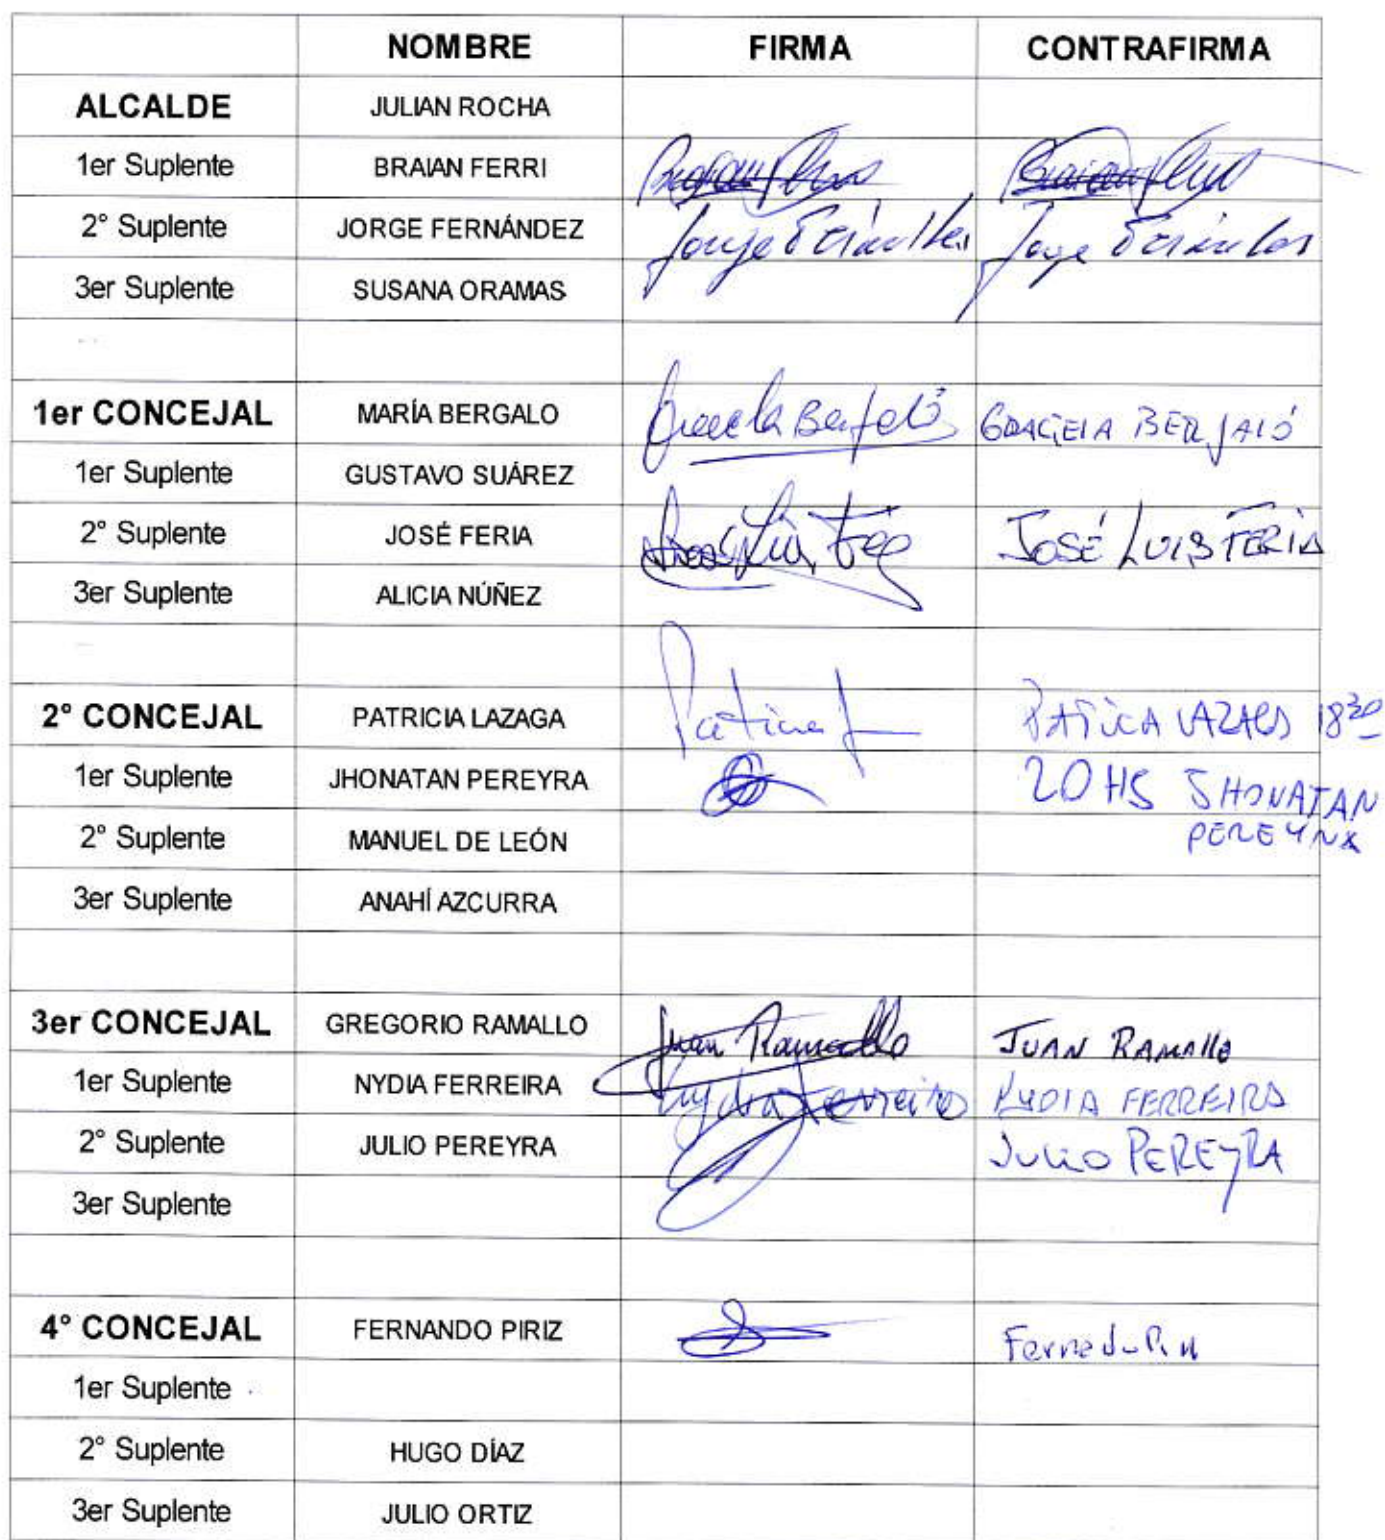 NOMBRE FIRMA CONTRAFIRMA
ALCALDE JULIAN ROCHA
1er Suplente BRAIAN FERRI Braian Braian
2° Suplente JORGE FERNÁNDEZ Jorge Jorge
3er Suplente SUSANA ORAMAS
1er CONCEJAL MARÍA BERGALO Graciela Bergaló GRACIELA BERGALÓ
1er Suplente GUSTAVO SUÁREZ
2° Suplente JOSÉ FERIA José Luis JOSÉ LUIS FERIA
3er Suplente ALICIA NÚÑEZ
2° CONCEJAL PATRICIA LAZAGA Patricia L 18 30
1er Suplente JHONATAN PEREYRA 20 HS JHONATAN
PEREYRA
2° Suplente MANUEL DE LEÓN
3er Suplente ANAHÍ AZCURRA
3er CONCEJAL GREGORIO RAMALLO Juan Ramallo JUAN RAMAllo
1er Suplente NYDIA FERREIRA Nydia Ferreira NYDIA FERREIRA
2° Suplente JULIO PEREYRA JULIO PEREYRA
3er Suplente
4° CONCEJAL FERNANDO PIRIZ
1er Suplente
2° Suplente HUGO DÍAZ
3er Suplente JULIO ORTIZ